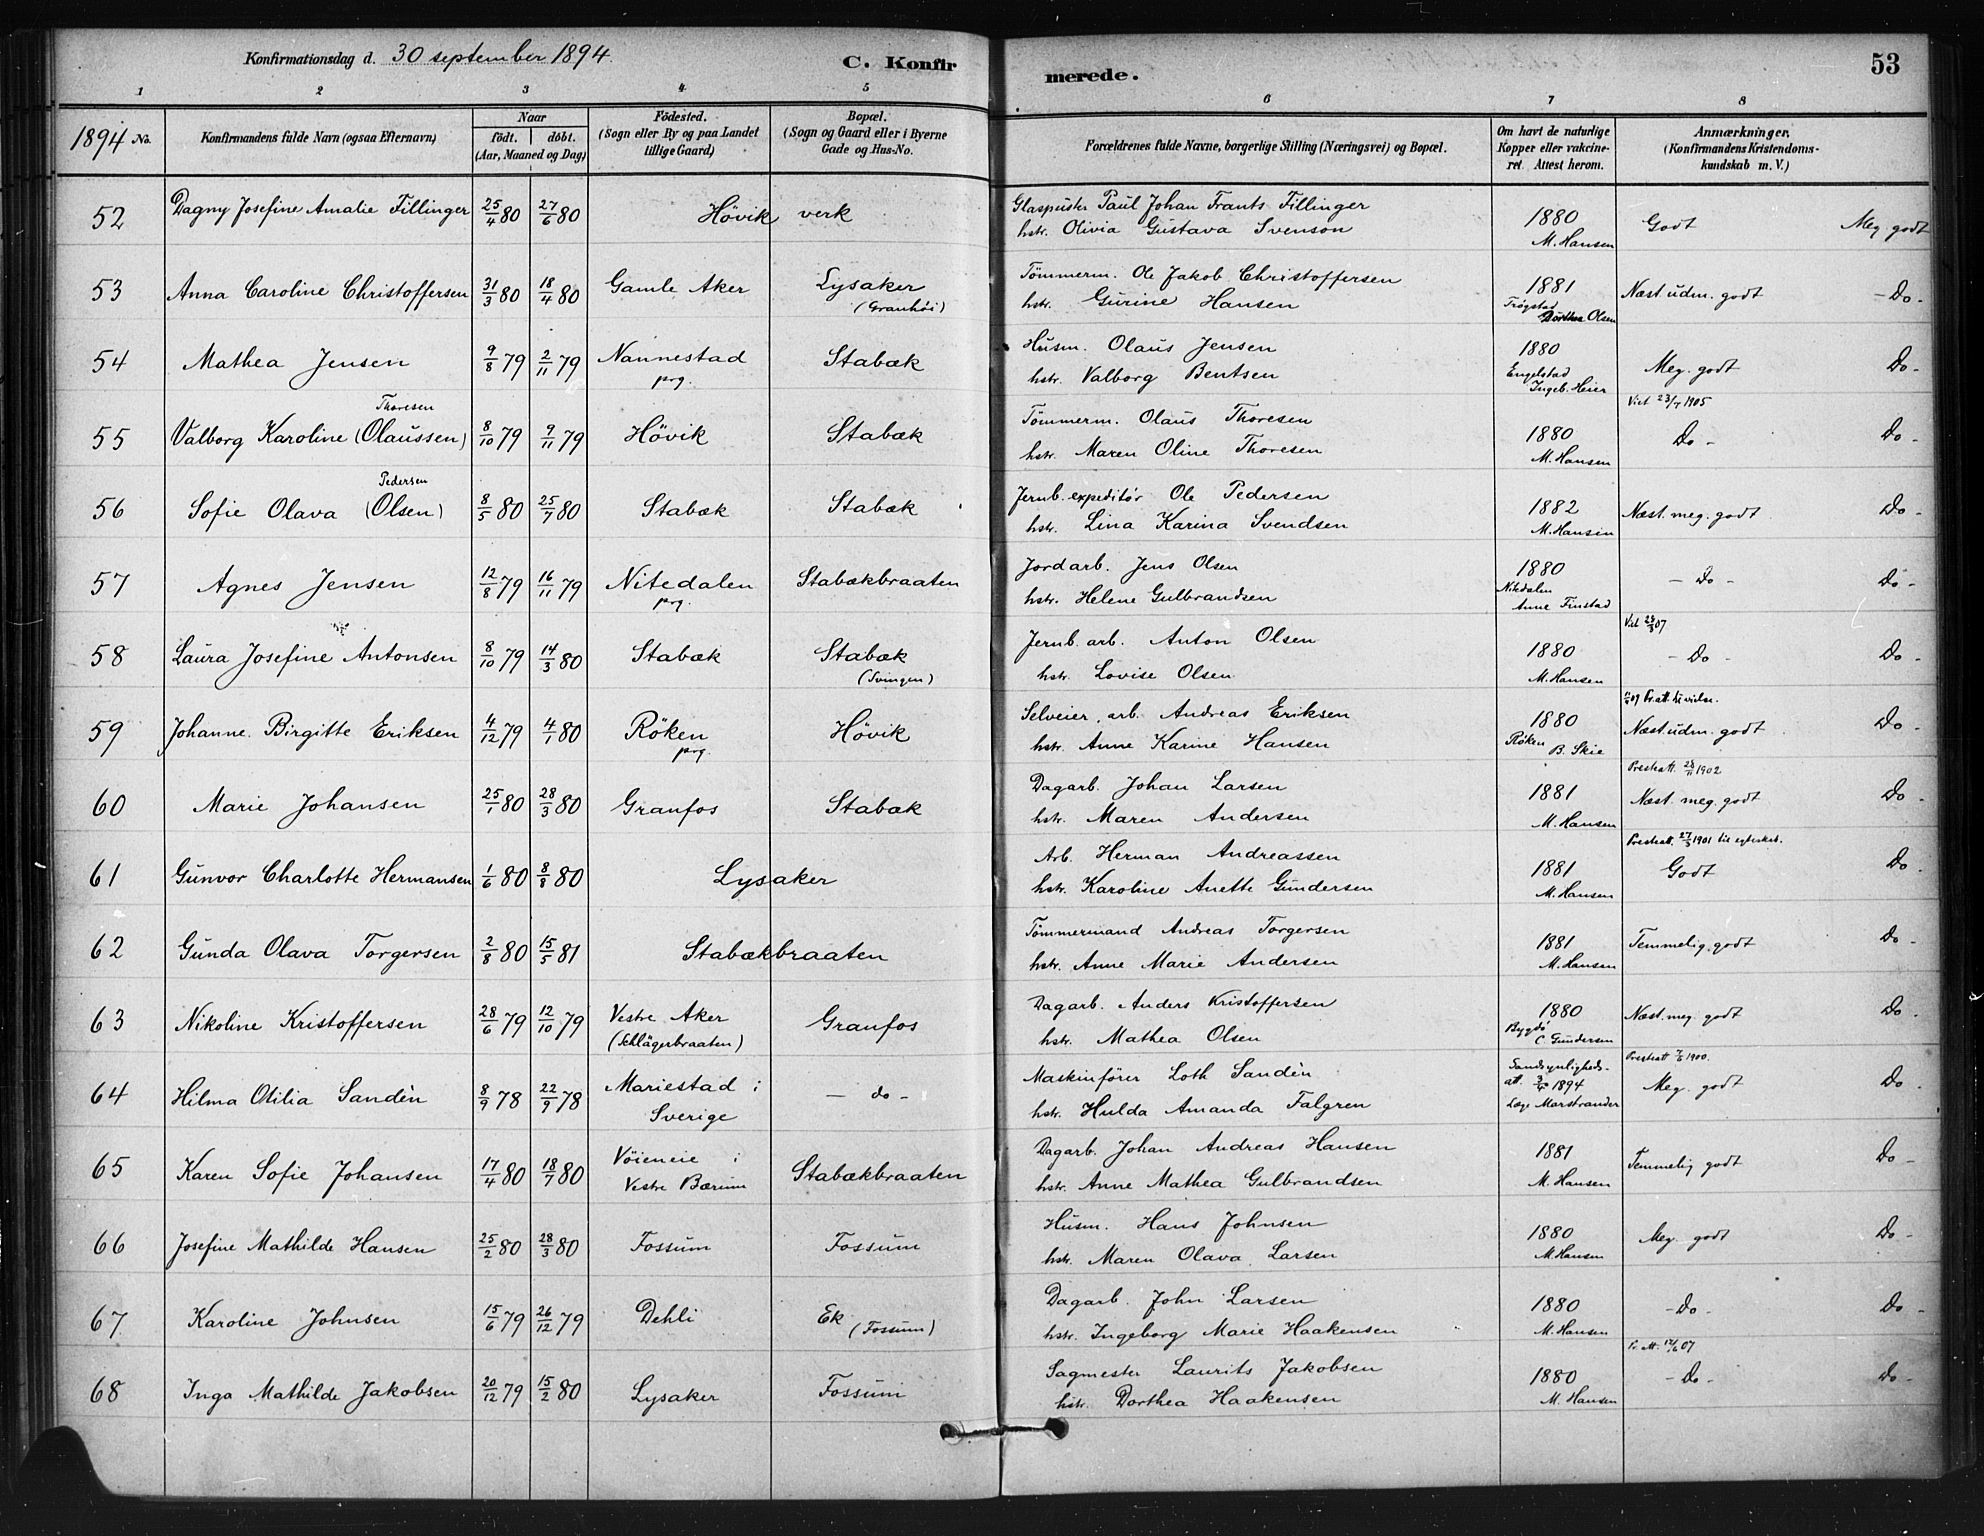 Konfirmationsdag d. 30 september 1894.
C. Konfirmerede.
53
1 2 3 4 5 6 7 8
1894 No.
Konfirmandens fulde Navn (ogsaa Efternavn)
Naar
födt. döbt.
(Aar, Maaned og Dag)
Födested.
(Sogn eller By og paa Landet
tillige Gaard)
Bopæl.
(Sogn og Gaard eller i Byerne
Gade og Hus-No.
Forældrenes fulde Navne, borgerlige Stilling (Næringsvei) og Bopæl.
Om havt de naturlige
Kopper eller vakcine-
ret. Attest herom.
Anmærkninger.
(Konfirmandens Kristendoms-
kundskab m. V.)
52 Dagny Josefine Amalie Fillinger 25/4 80 27/6 80 Hövik verk Glaspuster Paul Johan Frants Fillinger 1880 Godt Meg. godt
hstr. Olivia Gustava Svenson M. Hansen
53 Anna Caroline Christoffersen 31/3 80 18/4 80 Gamle Aker Lysaker Tömmerm. Ole Jakob Christoffersen 1881 Næst. udm. godt - Do -
(Granhöi) hstr. Gurine Hansen Trögstad
Dorthea Olsen
54 Mathea Jensen 9/8 79 2/11 79 Nannestad Stabæk Husm. Olaus Jensen 1880 Meg. godt Do -
prg. hstr. Valborg Bentsen Engelstad
Ingeb. Heier
Thoresen Viet 23/7 1905
55 Valborg Karoline (Olaussen) 8/10 79 9/11 79 Hövik Stabæk Tömmerm. Olaus Thoresen 1880 Do - Do -
hstr. Maren Oline Thoresen M. Hansen
Pedersen
56 Sofie Olava (Olsen) 8/5 80 25/7 80 Stabæk Stabæk Jernb. expeditör Ole Pedersen 1882 Næst. meg. godt Do -
hstr. Lina Karina Svendsen M. Hansen
57 Agnes Jensen 12/8 79 16/11 79 Nitedalen Stabækbraaten Jordarb. Jens Olsen 1880 - Do - Do -
prg. hstr. Helene Gulbrandsen Nitedalen
Anne Finstad
58 Laura Josefine Antonsen 8/10 79 14/3 80 Stabæk Stabæk Jernb. arb. Anton Olsen 1880 - Do - Do -
(Svingen) hstr. Lovise Olsen M. Hansen
59 Johanne Birgitte Eriksen 4/12 79 4/1 80 Röken Hövik Selveier, arb. Andreas Eriksen 1880 Næst. udm. godt Do -
prg. hstr. Anne Karine Hansen Röken B. Skie
Prestatt. 28/11 1902
60 Marie Johansen 25/1 80 28/3 80 Granfos Stabæk Dagarb. Johan Larsen 1881 Næst. meg. godt Do -
hstr. Maren Andersen M. Hansen
Prestatt. 27/3 1901 til
61 Gunvor Charlotte Hermansen 1/6 80 8/8 80 Lysaker Arb. Herman Andreassen 1881 Godt Do -
hstr. Karoline Anette Gundersen M. Hansen
62 Gunda Olava Torgersen 2/8 80 15/5 81 Stabækbraaten Tömmermand Andreas Torgersen 1881 Temmelig godt Do -
hstr. Anne Marie Andersen M. Hansen
63 Nikoline Kristoffersen 28/6 79 12/10 79 Vestre Aker Granfos Dagarb. Anders Kristoffersen 1880 Næst. meg. godt Do -
(Schlägerbraaten) hstr. Mathea Olsen Bygdö
C. Gundersen
64 Hilma Otilia Sandèn 8/9 78 22/9 78 Mariestad i - do - Maskinförer Loth Sandèn Sandsynligheds- Meg. godt Do -
Sverige hstr. Hulda Amanda Falgren att. 1894
Læge Marstrander
65 Karen Sofie Johansen 17/4 80 18/7 80 Vöieneie i Stabækbraaten Dagarb. Johan Andreas Hansen 1881 Temmelig godt Do -
Vestre Bærum hstr. Anne Mathea Gulbrandsen M. Hansen
66 Josefine Mathilde Hansen 25/2 80 28/3 80 Fossum Fossum Husm. Hans Johnsen 1880 Meg. godt Do -
hstr. Maren Olava Larsen M. Hansen
67 Karoline Johnsen 15/6 79 26/12 79 Dehli Ek Dagarb. John Larsen 1880 - Do - Do -
(Fossum) hstr. Ingeborg Marie Haakensen M. Hansen
68 Inga Mathilde Jakobsen 20/12 79 15/2 80 Lysaker Fossum Sagmester Laurits Jakobsen 1880 - Do - Do -
hstr. Dorthea Haakensen M. Hansen